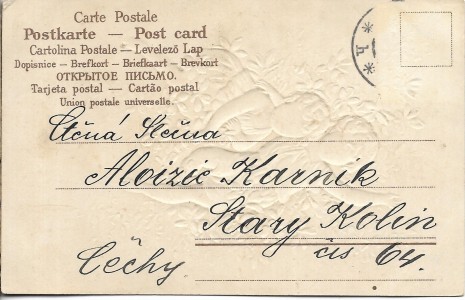 Carte Postale
Postkarte — Post card
Cartolina Postale — Levelező Lap
Dopisnice — Brefkort — Briefkaart — Brevkort
ОТКРЫТОЕ ПИСЬМО.
Tarjeta postal — Cartão postal
Union postale universelle.
Ctčná Slečna
Aloizie Karnik
Stary Kolin
čis 64.
Čechy.